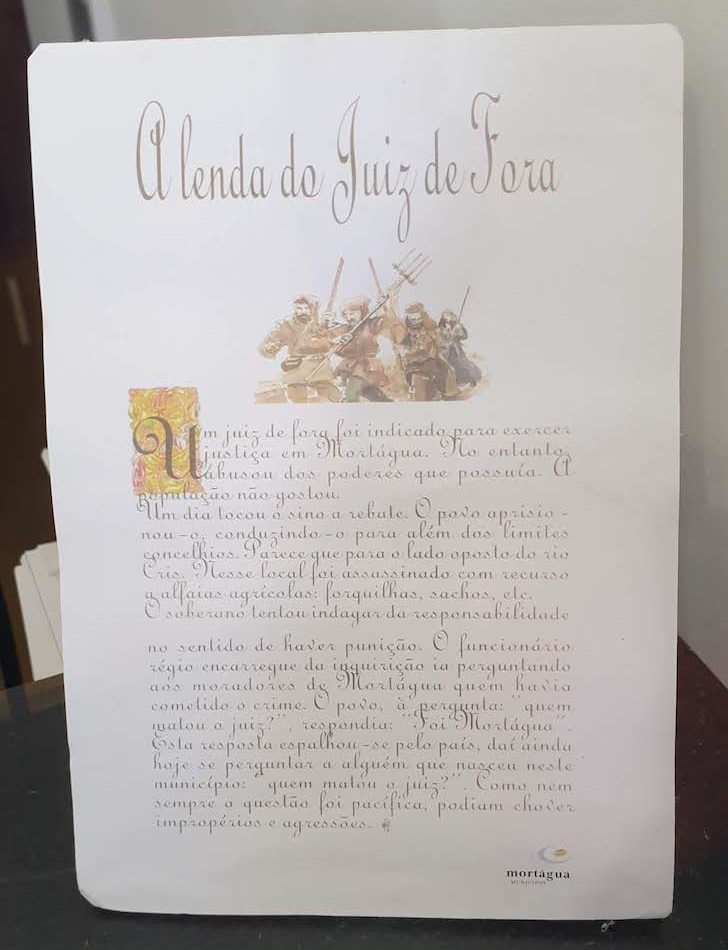 A lenda do Juiz de Fora
Um juiz de fora foi indicado para exercer
justiça em Mortágua. No entanto,
abusou dos poderes que possuía. A
população não gostou.
Um dia tocou o sino a rebate. O povo aprisio-
nou-o, conduzindo-o para além dos limites
concelhios. Parece que para o lado oposto do rio
Cris. Nesse local foi assassinado com recurso
a alfaias agrícolas: forquilhas, sachos, etc.
O soberano tentou indagar da responsabilidade
no sentido de haver punição. O funcionário
régio encarregue da inquirição ia perguntando
aos moradores de Mortágua quem havia
cometido o crime. O povo, à pergunta: "quem
matou o juiz?", respondia: "Foi Mortágua".
Esta resposta espalhou-se pelo país, daí ainda
hoje se perguntar a alguém que nasceu neste
município: "quem matou o juiz?". Como nem
sempre a questão foi pacífica, podiam chover
impropérios e agressões.
mortágua
MUNICÍPIO